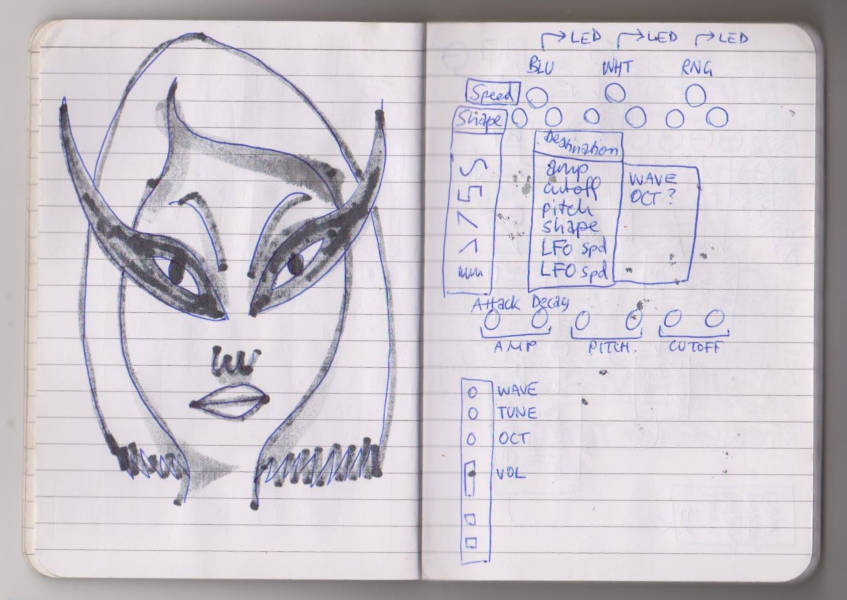 LED LED LED
BLU WHT RNG
Speed
Shape
Destination
amp
cutoff
pitch
shape
LFO spd
LFO spd
WAVE
OCT ?
Attack Decay
AMP PITCH. CUTOFF
WAVE
TUNE
OCT
VOL